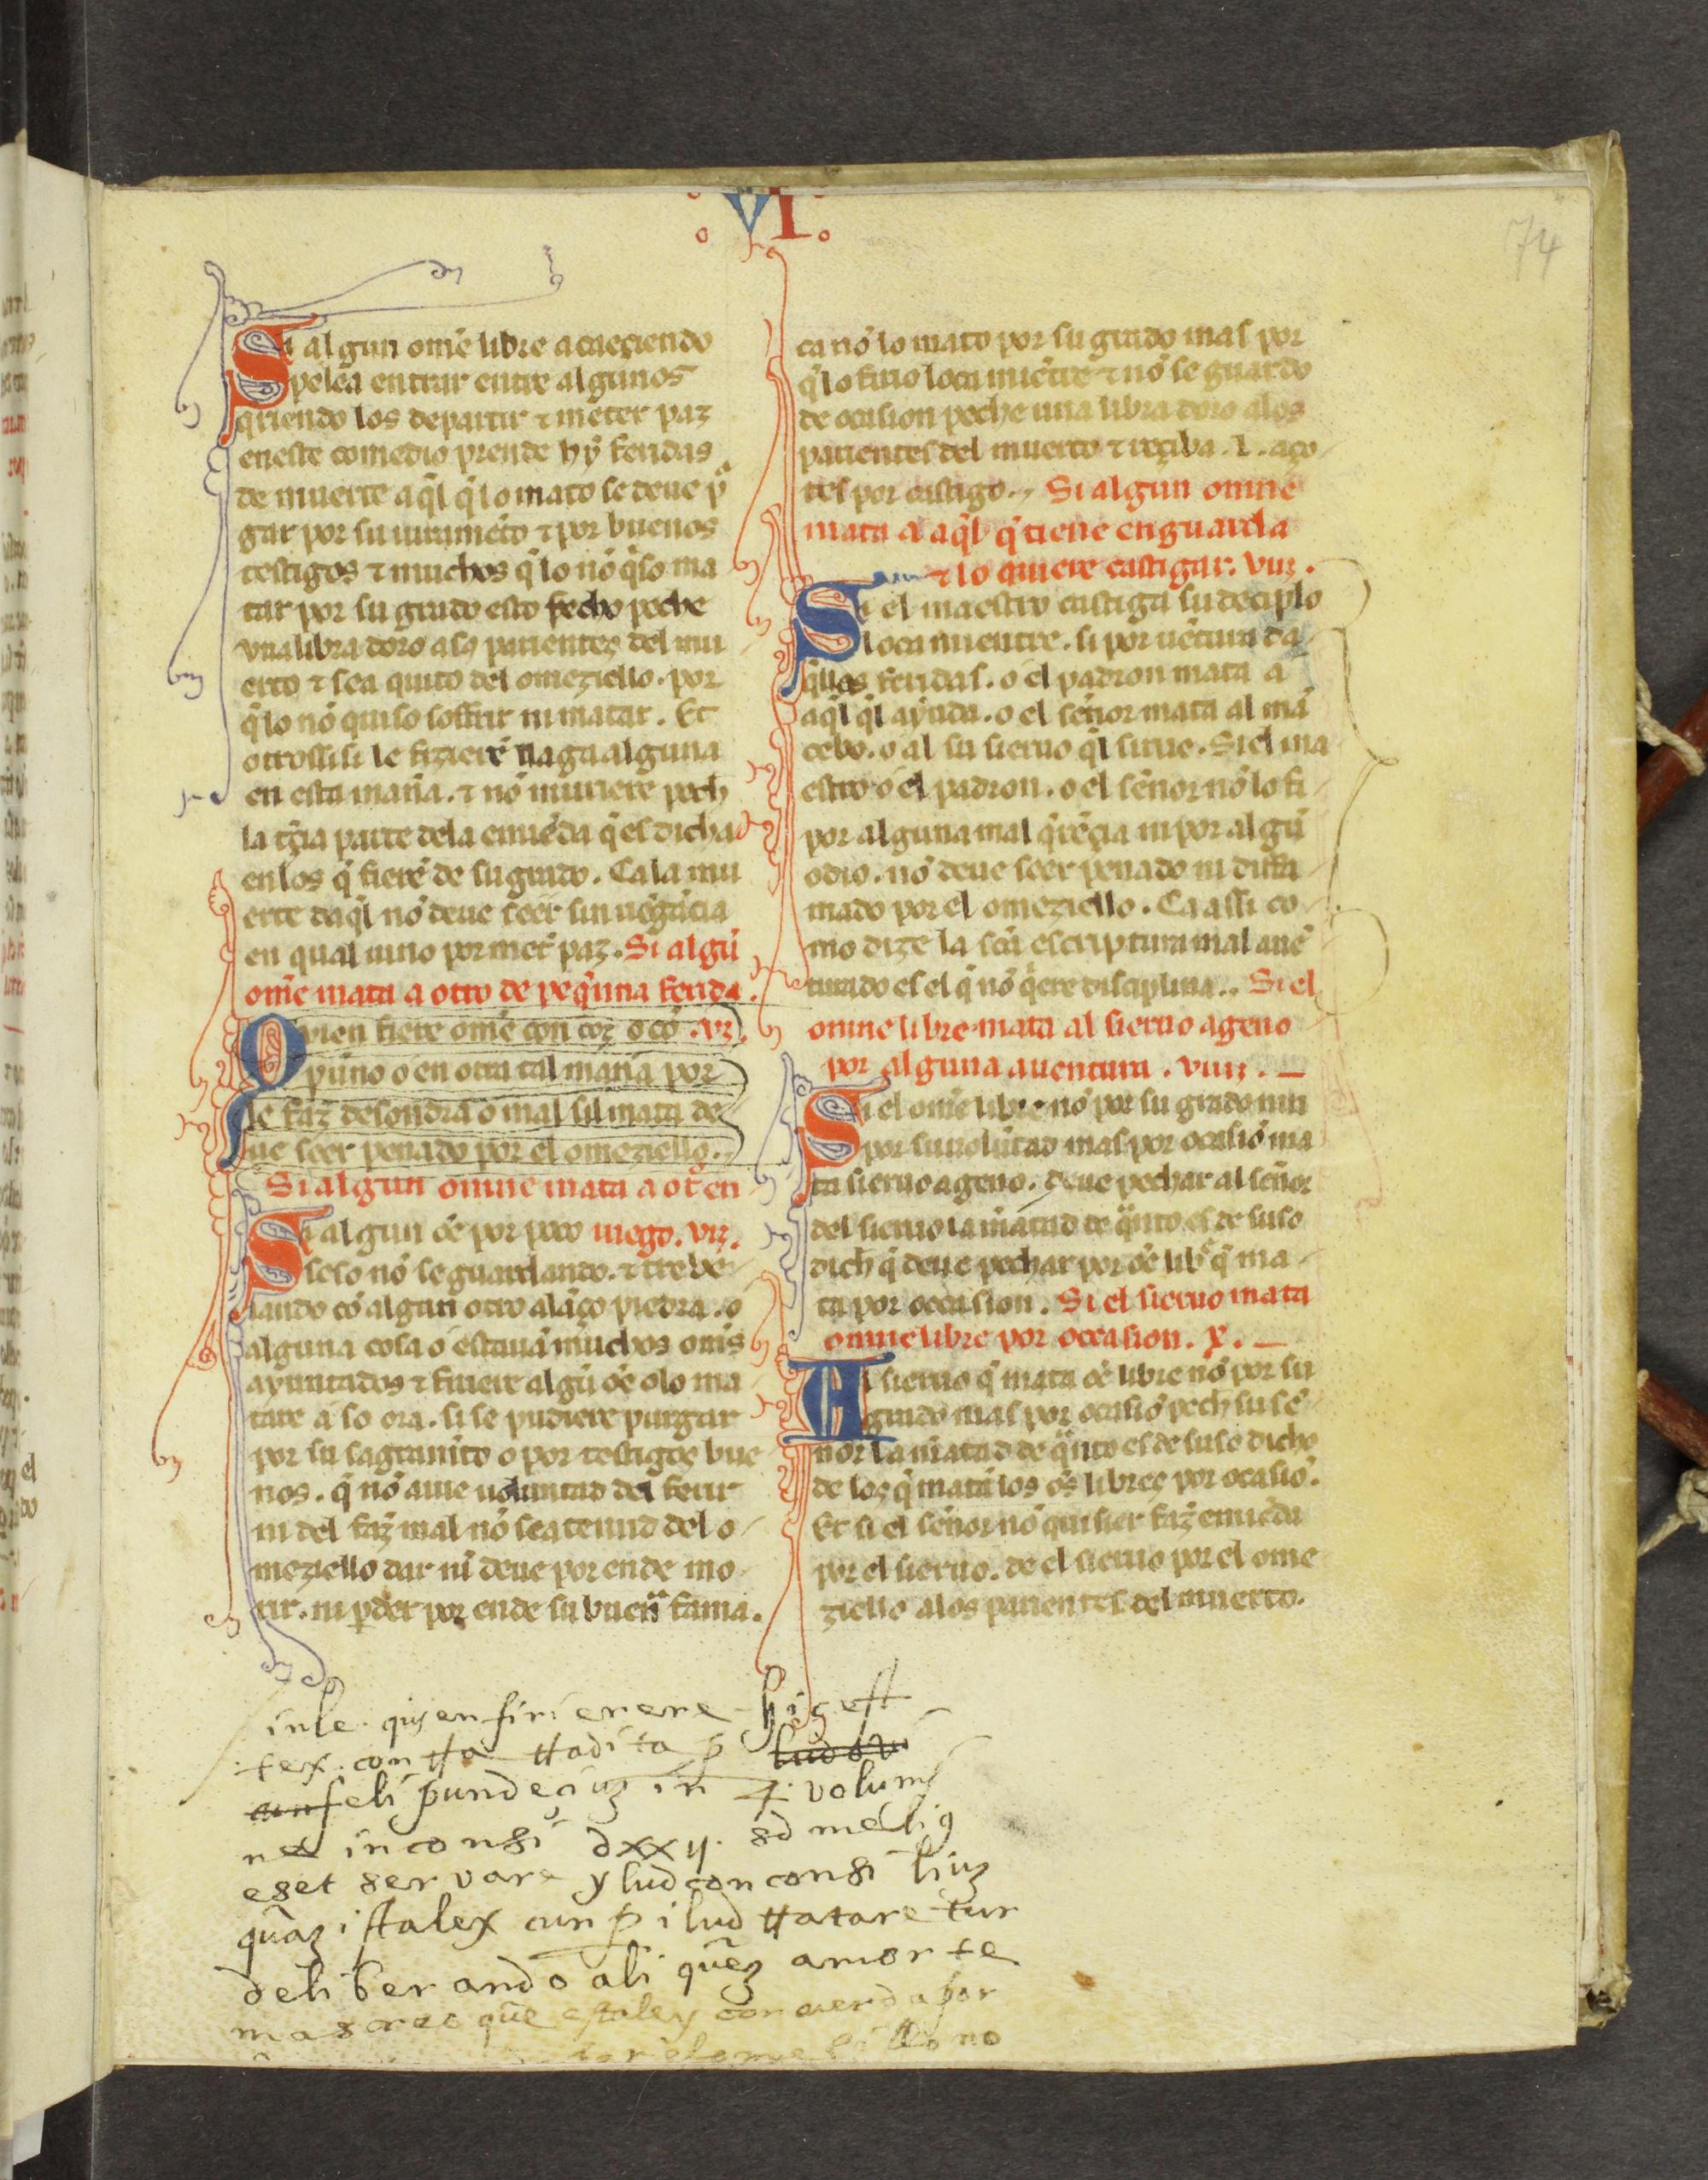 VI
74
Si algun omẽ libre acaeçiendo
pelea entrar entre algunos
q̃riendo los departir ⁊ meter paz
eneste comedio prende hy feridas
de muerte aq̃l q̃ lo mato se deue pᵃ
gar por su iuramẽto ⁊ por buenos
testigos ⁊ muchos q̃ lo nõ q̃so ma
tar por su grado esto fecho peche
vna libra doro a los parientes del mu
erto ⁊ sea quito del omeziello. por
q̃ lo nõ quiso soffrir ni matar. Et
otrossi si le fizierẽ llaga alguna
en esta manã. ⁊ nõ muriere pech
la tc̃ia parte dela emiẽda q̃ es dicha
en los q̃ fierẽ de su grado. Ca la mu
erte daq̃l nõ deue seer sin uẽgãcia
en qual uino por met̃ paz. Si algũ
omẽ mata a otro de peq̃ña ferida.
Qvien fiere omẽ con coz o cõ .vj.
pũno o en otra tal manã por
le faz̃ desondra o mal sil mata de
ue seer penado por el omeziello.
Si algun omne mata a ot̃ en
Si algun õe por poco iuego. vij.
seso nõ se guardando. ⁊ trebe
iando cõ algun otro alãço piedra. o
alguna cosa o estauã muchos oms̃
ayuntados ⁊ firiere algũ õe o lo ma
tare a so ora. si se pudiere purgar
por su sagramẽto o por testigos bue
nos. q̃ nõ auie uoluntad del ferir
ni del faz̃ mal nõ sea tenud del o
meziello dar ni deue por ende mo
rir. ni ꝑder por ende su buenᵃ fama.
ca nõ lo mato por su grado mas por
q̃ lo firio loca miẽtre ⁊ nõ se guardo
de ocasion peche una libra doro alos
parientes del muerto ⁊ reçiba .L. aço
tes por castigo. Si algun omne
mata a aq̃l q̃ tiene en guarda
⁊ lo quiere castigar. viij.
Si el maestro castiga su deciplo
loca mientre. si por uẽtura da
q̃llas feridas. o el padron mata a
aq̃l q̃l ayuda. o el sẽnor mata al mã
cebo. o al su sieruo q̃l sirue. Si el ma
estro o el padron. o el sẽnor nõ lo fi
por alguna mal q̃rẽçia ni por algũ
odio. nõ deue seer penado ni diffa
mado por el omeziello. Ca assi co
mo dize la scã escriptura mal auẽ
turado es el q̃ nõ q̃ere disciplina. Si el
omne libre mata al sieruo ageno
por alguna auentura. viiij.
Si el omẽ libre nõ por su grado nin
por su uolũtad mas por ocasiõ ma
ta sieruo ageno. deue pechar al señor
del sieruo la meatad de quãto es de suso
dich q̃ deue pechar por õe lib̃ q̃ ma
ta por occasion. Si el sieruo mata
omne libre por occasion. x.
El sieruo q̃ mata õe libre nõ por su
grado mas por ocasiõ pech su sẽ
nor la meatad de quãto es de suso dicho
de los q̃ matã los õs libres por ocasiõ.
Et si el sẽnor nõ quisier faz̃ emiẽda
por el sieruo. de el sieruo por el ome
ziello alos parientes del muerto.
inle. quyen firierere hig est
lex. con tta ttadita p̃ ludovi
feli pundecing in 4. volum̃
ne inconsi dxx ij. sd melig
eset servare ylud con consi liuz
quãz ista lex cun p ilud ttataretur
deliberando ali quẽz amorte
mas creo que esta ley concuerda por